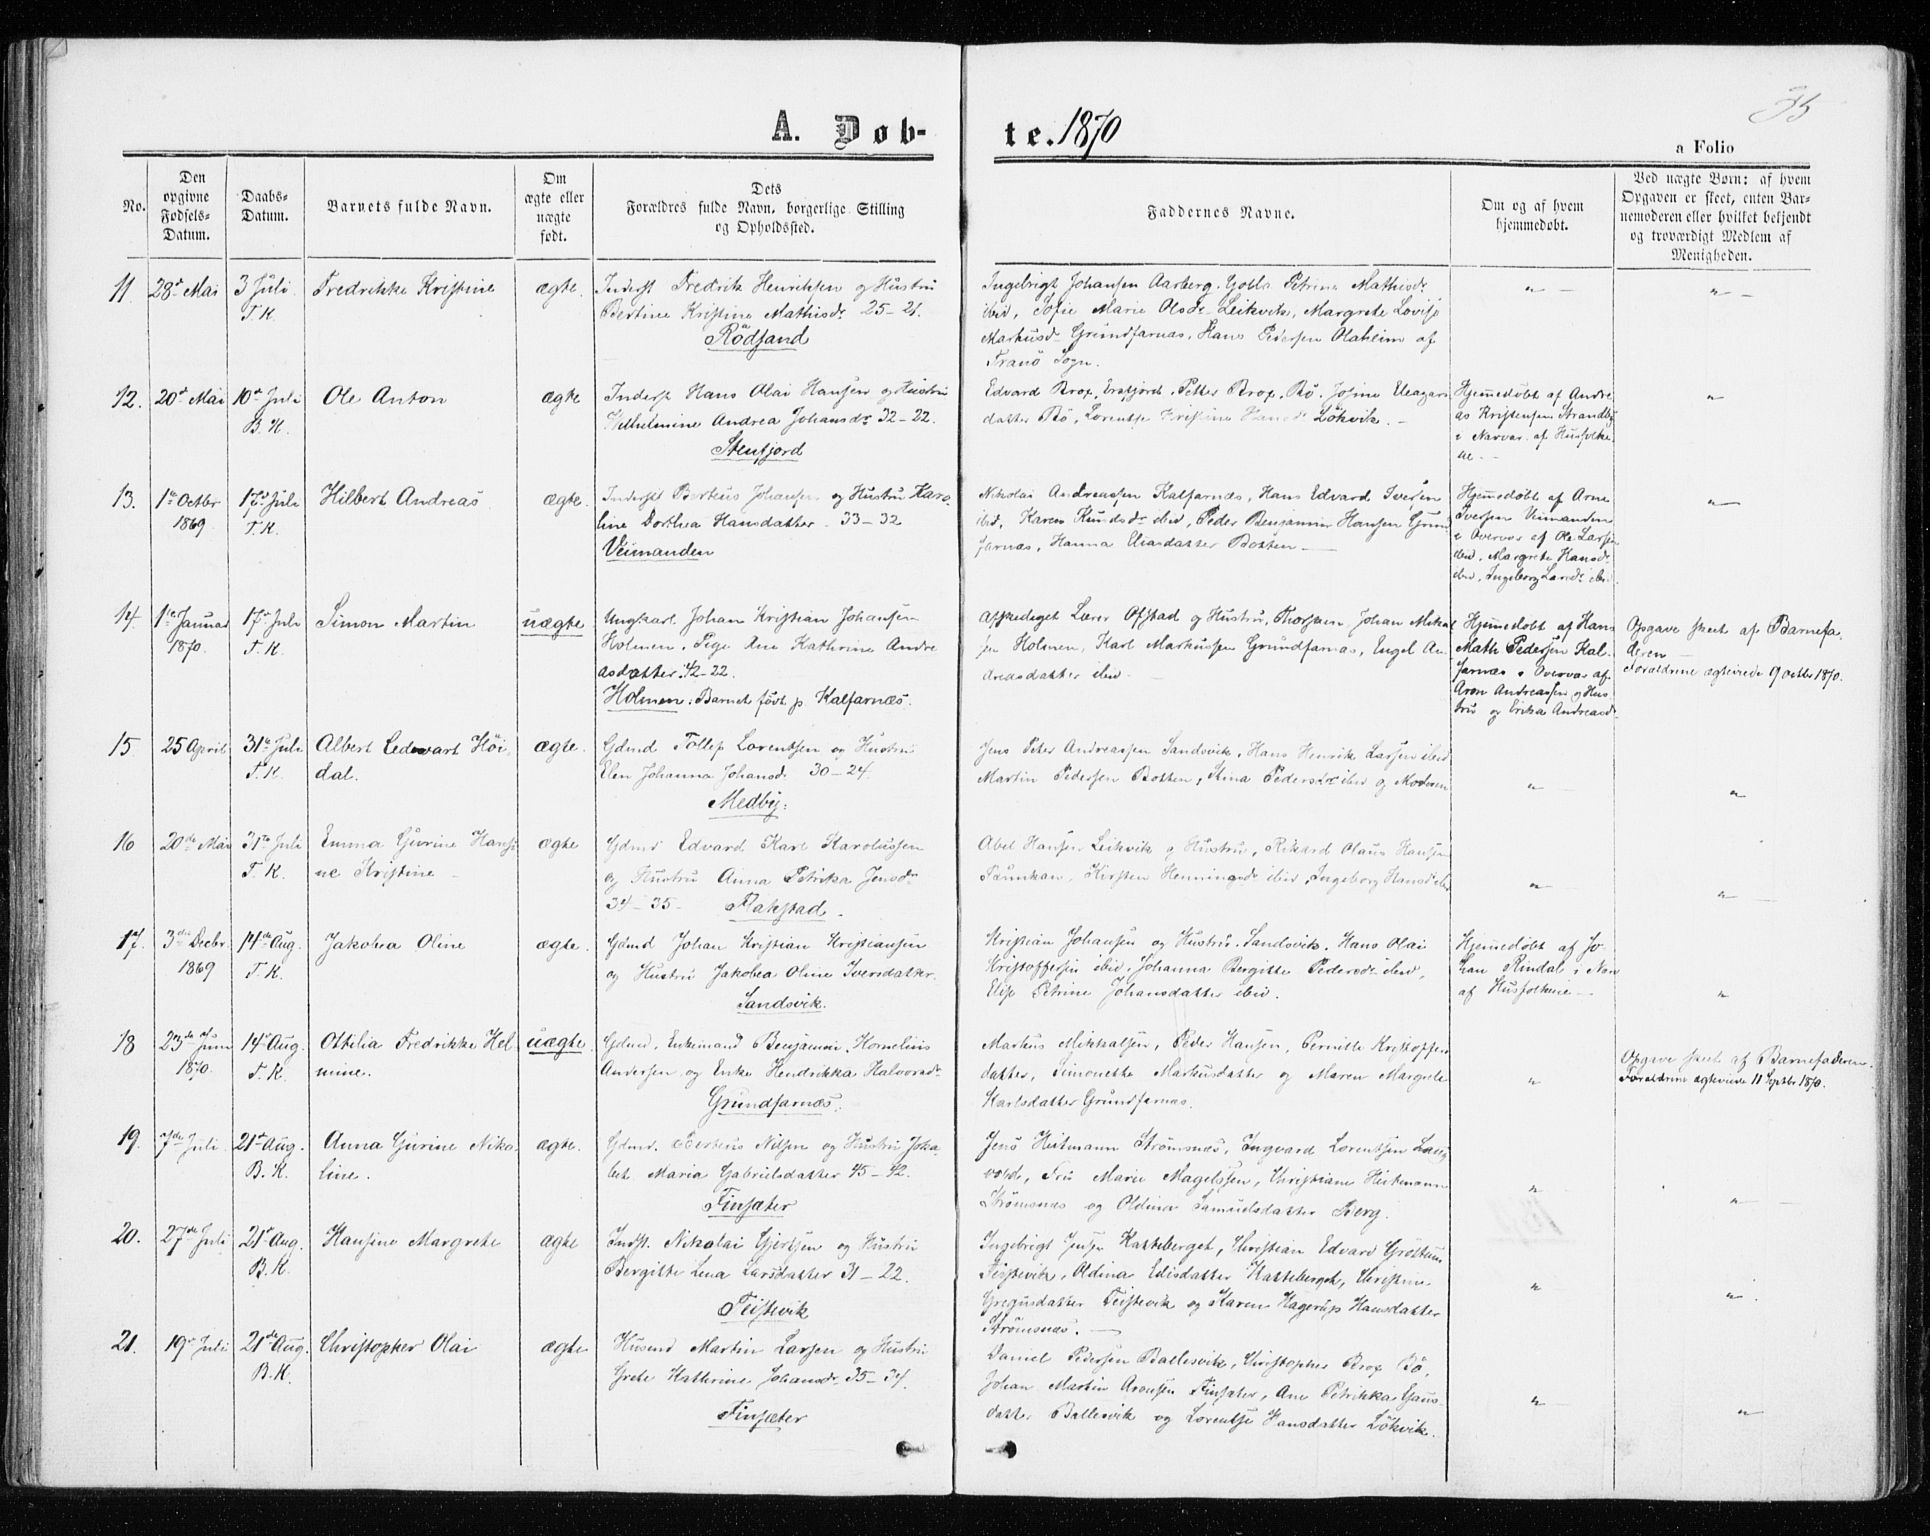 35
A. Døb-
te. 1870
a Folio
No.
Den
opgivne
Fødsels-
Datum.
Daabs-
Datum.
Barnets fulde Navn.
Om
ægte eller
uægte
født.
Dets
Forældres fulde Navn, borgerlige Stilling
og Opholdssted.
Faddernes Navne.
Om og af hvem
hjemmedøbt.
Ved uægte Børn: af hvem
Opgaven er skeet, enten Bar-
nemoderen eller hvilket bekjendt
og troværdigt Medlem af
Menigheden.
11
28de Mai
3 Juli
T. K.
Fredrikke Kristine
ægte
Inderst Fredrik Henriksen og Hustru
Bertine Kristine Mathisdr 25-21.
Rödsand
Ingebrigt Johansen Aarberg, Petrine Mathisdr
ibid, Sofie Marie Olsdr Leikvik, Margrete Lovise
Markusdr Grundfarnæs, Hans Pedersen Olaheim af
Tranö Sogn.
"
"
12.
20de Mai
10de Juli
B. K.
Ole Anton
ægte
Inderst Hans Olai Hansen og Hustru
Vilhelmine Andrea Johansdr 32-22.
Stenfjord
Edvard Brox, Ersfjord, Petter Brox, Bö, Josine Eleazars
datter Bö, Lorentse Kristine Hansdr Lökvik.
Hjemmedøbt af Andre
as Kristensen Strandby
i Nærvær af Husfolke
ne.
"
13.
1ste Octbr
1869
17de Juli
T. K.
Hilbert Andreas
ægte
Inderst Berteus Johansen og Hustru Karo
line Dorthea Hansdatter 33-32
Veimanden
Nikolai Andreassen Kalfarnæs, Hans Edvard Iversen
ibid, Karen Knudsdr ibid, Peder Benjamin Hansen Grund
farnæs, Hanna Eliasdatter Botten
Hjemmedøbt af Arne
Iversen Veimanden
i Overvær af Ole Larsen
ibid, Margrete Hansdr
ibid, Ingeborg Larsdr ibid
"
14.
1ste Januar
1870.
17de Juli
T. K.
Simon Martin
uægte
Ungkarl Johan Kristian Johansen
Holmen, Pige Ane Kathrine Andre
asdatter 42-22.
Holmen. Barnet födt p. Kalfarnæs.
Afskediget Lærer Ofstad og Hustru, Johan Mikal
sen Holmen, Karl Markussen Grundfarnæs, Engel An
dreasdatter ibid
Hjemmedøbt af Hans
Math Pedersen Kal
farnæs i Overvær af
Aron Andreassen og Hus
tru og Erika Andreasdr
Opgave skeet af Barnefa
deren
Forældrene ægteviede 9 octbr 1870.
15
25 April
31te Juli
T. K.
Albert Ledevart Höi
dal.
ægte.
Gdmd Tollef Lorentsen og Hustru
Elen Johanna Johansdr 30-24.
Medby.
Jens Peter Andreassen Sandsvik, Hans Henrik Larsen ibid
Martin Pedersen Botten, Stina Pedersdr ibid og Moderen
"
"
16
20de Mai
31te Juli
T. K.
Emma Gurine Hansi
ne Kristine
ægte
Gdmd Edvard Karl Karolussen
og Hustru Anna Petrika Jensdr
34-35- Flakstad
Abel Hansen Leikvik og Hustru, Rikard Olaus Hansen
Kirsten Henningsdr ibid, Ingeborg Hansdr ibid
"
"
17.
3die Decbr.
1869
14de Aug.
T. K.
Jakobea Oline
ægte.
Gdmd Johan Kristian Kristiansen
og Hustru Jakobea Oline Iversdatter
Sandsvik.
Kristian Johansen og Hustru, Sandsvik, Hans Olai
Kristoffersen ibid, Johanna Bergitte Pedersdr ibid,
Elise Petrine Johansdatter ibid.
Hjemmedøbt af Jo
han Rindal i Nærv
af Husfolkene
"
18
23de Juni
1870.
14de Aug.
T. K.
Othilia Fredrikke Hel
mine.
uægte.
Gdmd. Enkemand Benjamin Kornelius
Andersen og Enke Hendrikka Halvorsdr
Grundfarnæs.
Markus Mikkalsen, Peder Hansen, Pernille Kristoffers
datter, Simonette Markusdatter og Maren Margrete
Karlsdatter Grundfarnæs.
"
Opgave skeet af Barnefaderen
Forældrene ægteviede 11 Septbr 1870.
19.
7de Juli
21de Aug.
B. K.
Anna Gurine Niko
line.
ægte.
Gdmd. Berteus Nilsen og Hustru Joka
bet Maria Gabrielsdatter 45-42.
Finsæter
Jens Heitmann Strømsnæs, Ingvard Lorentsen
Fru Marie Magelssen, Christiane Heitmann
Strømsnæs og Oldina Samuelsdatter Berg.
"
"
20.
27de Juli
21de Aug.
B. K.
Hansine Margrete
ægte
Indst. Nikolai Gjertsen og Hustru
Bergitte Lena Larsdatter 31-22.
Teistevik
Ingebrigt Jensen Katteberget, Christian Edvard
Teistevik, Oldina Edisdatter Katteberget, Christine
Gregusdatter Teistevik og Karen Hagerup Hansdatter
Strømsnæs.
"
"
21.
19de Juli
21de Aug.
B. K.
Christopher Olai
ægte
Husmd Martin Larsen og Hustru
Grete Kathrine Johansdr 35-34.
Finsæter
Daniel Pedersen Ballesvik, Christopher Brox Bö,
Johan Martin Aronsen Finsæter, Ane Petrikka
datter Ballesvik og Lorentse Hansdatter Lökvik.
"
"